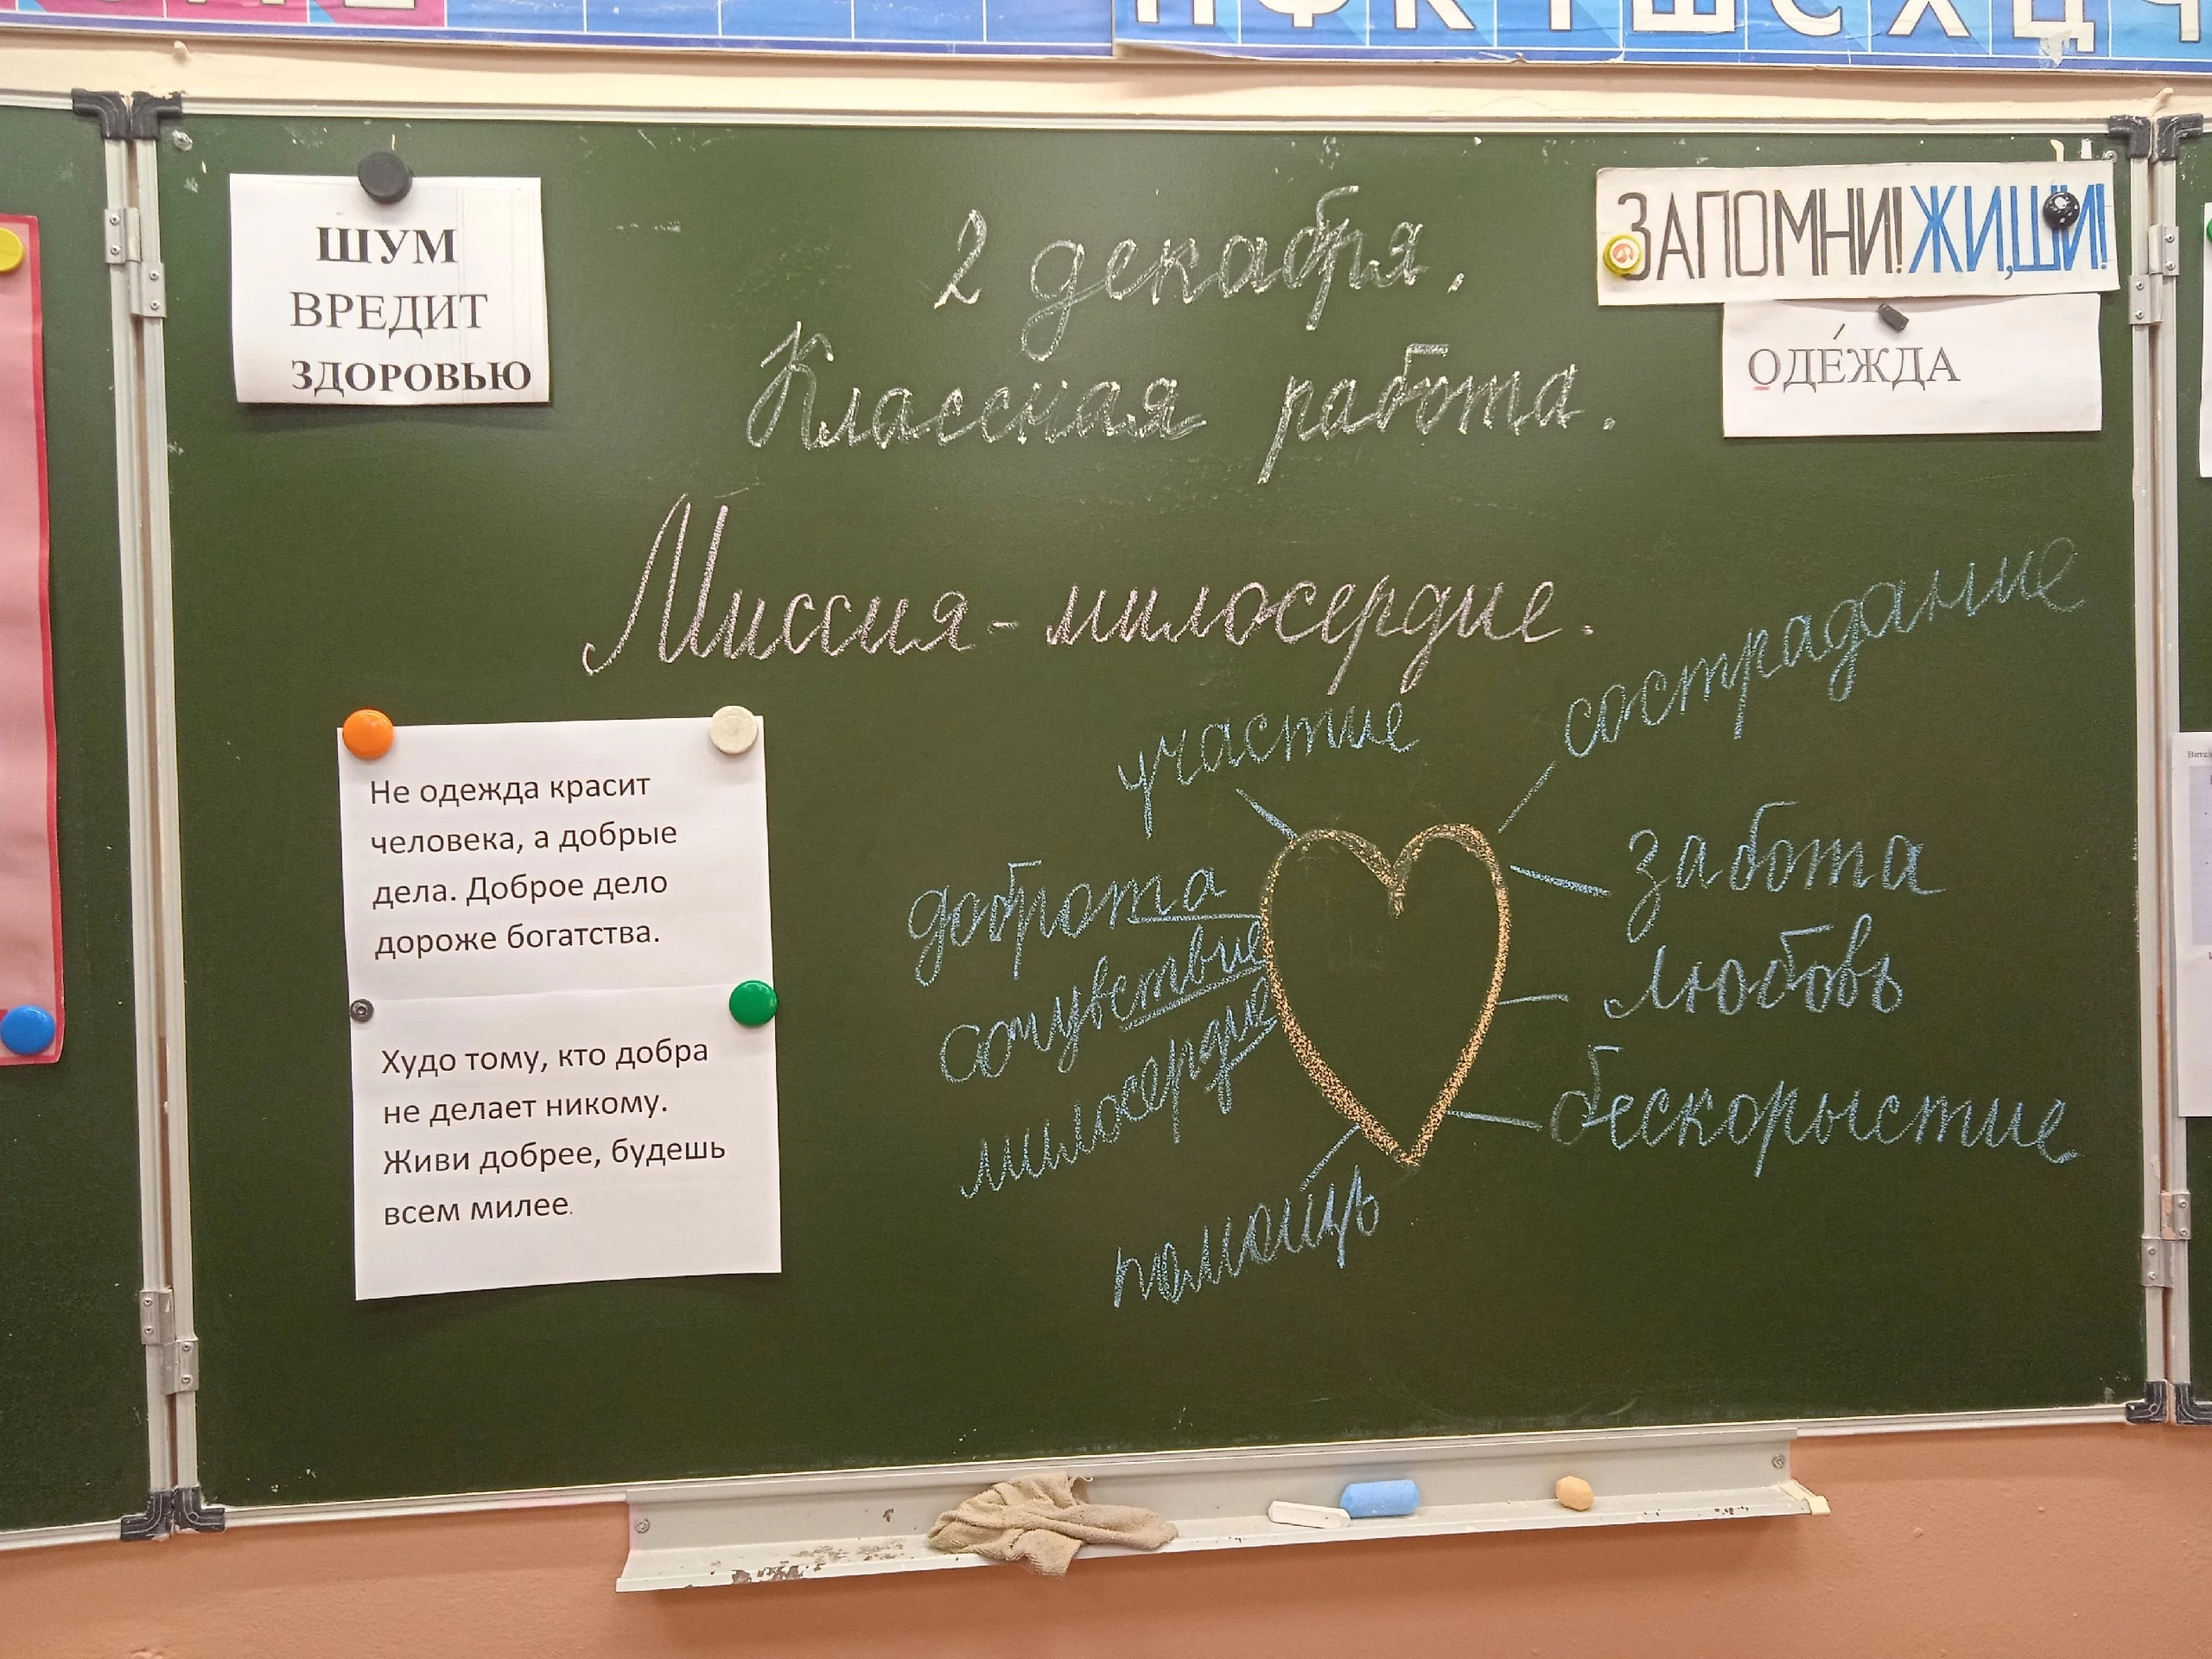 П Ф К Т Ш С Х Ц Ч
ШУМ
ВРЕДИТ
ЗДОРОВЬЮ
2 декабря.
Классная работа.
ЗАПОМНИ! ЖИ,ШИ!
ОДЕ́ЖДА
Миссия - милосердие.
Не одежда красит
человека, а добрые
дела. Доброе дело
дороже богатства.
Худо тому, кто добра
не делает никому.
Живи добрее, будешь
всем милее.
участие
сострадание
доброта
забота
сочувствие
любовь
милосердие
бескорыстие
помощь